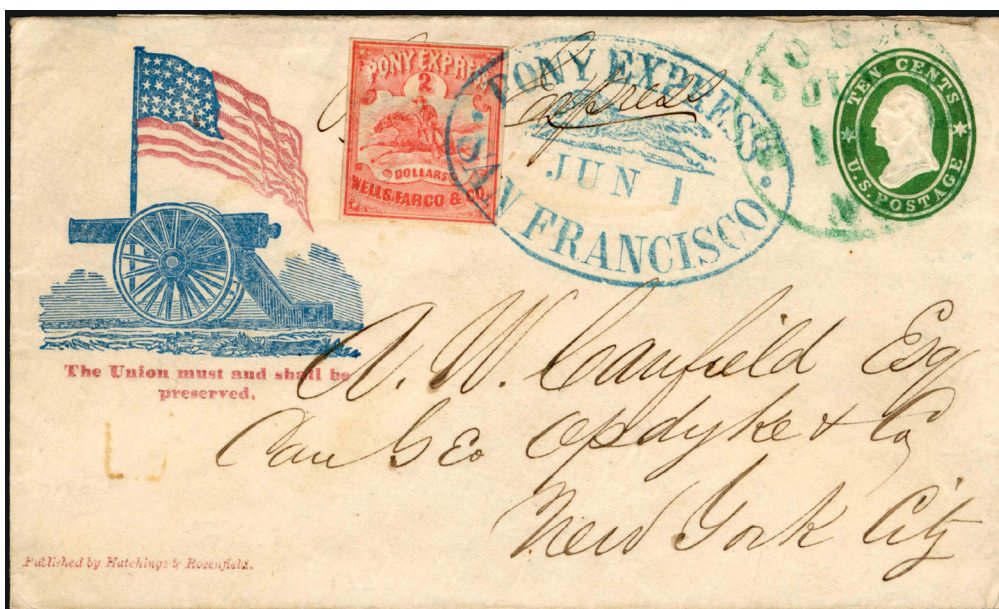 Pony Express
PONY EXPRESS
2
DOLLARS
WELLS, FARGO & Co.
PONY EXPRESS
JUN 1
SAN FRANCISCO
TEN CENTS
U.S. POSTAGE
The Union must and shall be
preserved.
A. W. Canfield Esq
Care Geo Opdyke & Co
New York City
Published by Hutchings & Rosenfield.